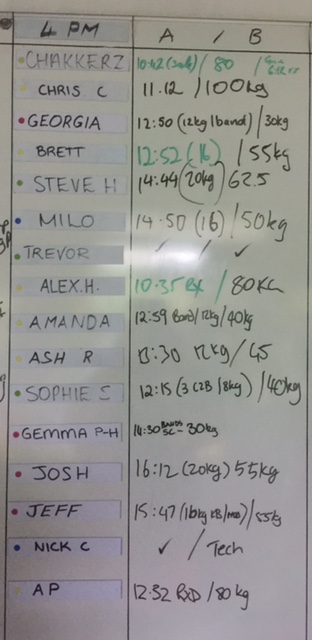 4 PM A / B
CHAKKERZ 10:42 / 80 /
CHRIS C 11.12 / 100kg
GEORGIA 12:50 (12kg 1band) / 30kg
BRETT 12:52 (16) / 55kg
STEVE H 14:44 (20kg) 62.5
MILO 14:50 (16) / 50kg
TREVOR ✓ / ✓
ALEX.H. 10:35 RX / 80KG
AMANDA 12:59 Band/12kg/40kg
ASH R 13:30 12kg / 45
SOPHIE S 12:15 (3 C2B / 8kg) / 40kg
GEMMA P-H 14:30 BANDS - 30kg
JOSH 16:12 (20kg) 55kg
JEFF 15:47 (16kg KB / ) / 55kg
NICK C ✓ / Tech
AP 12:32 RXD / 80kg